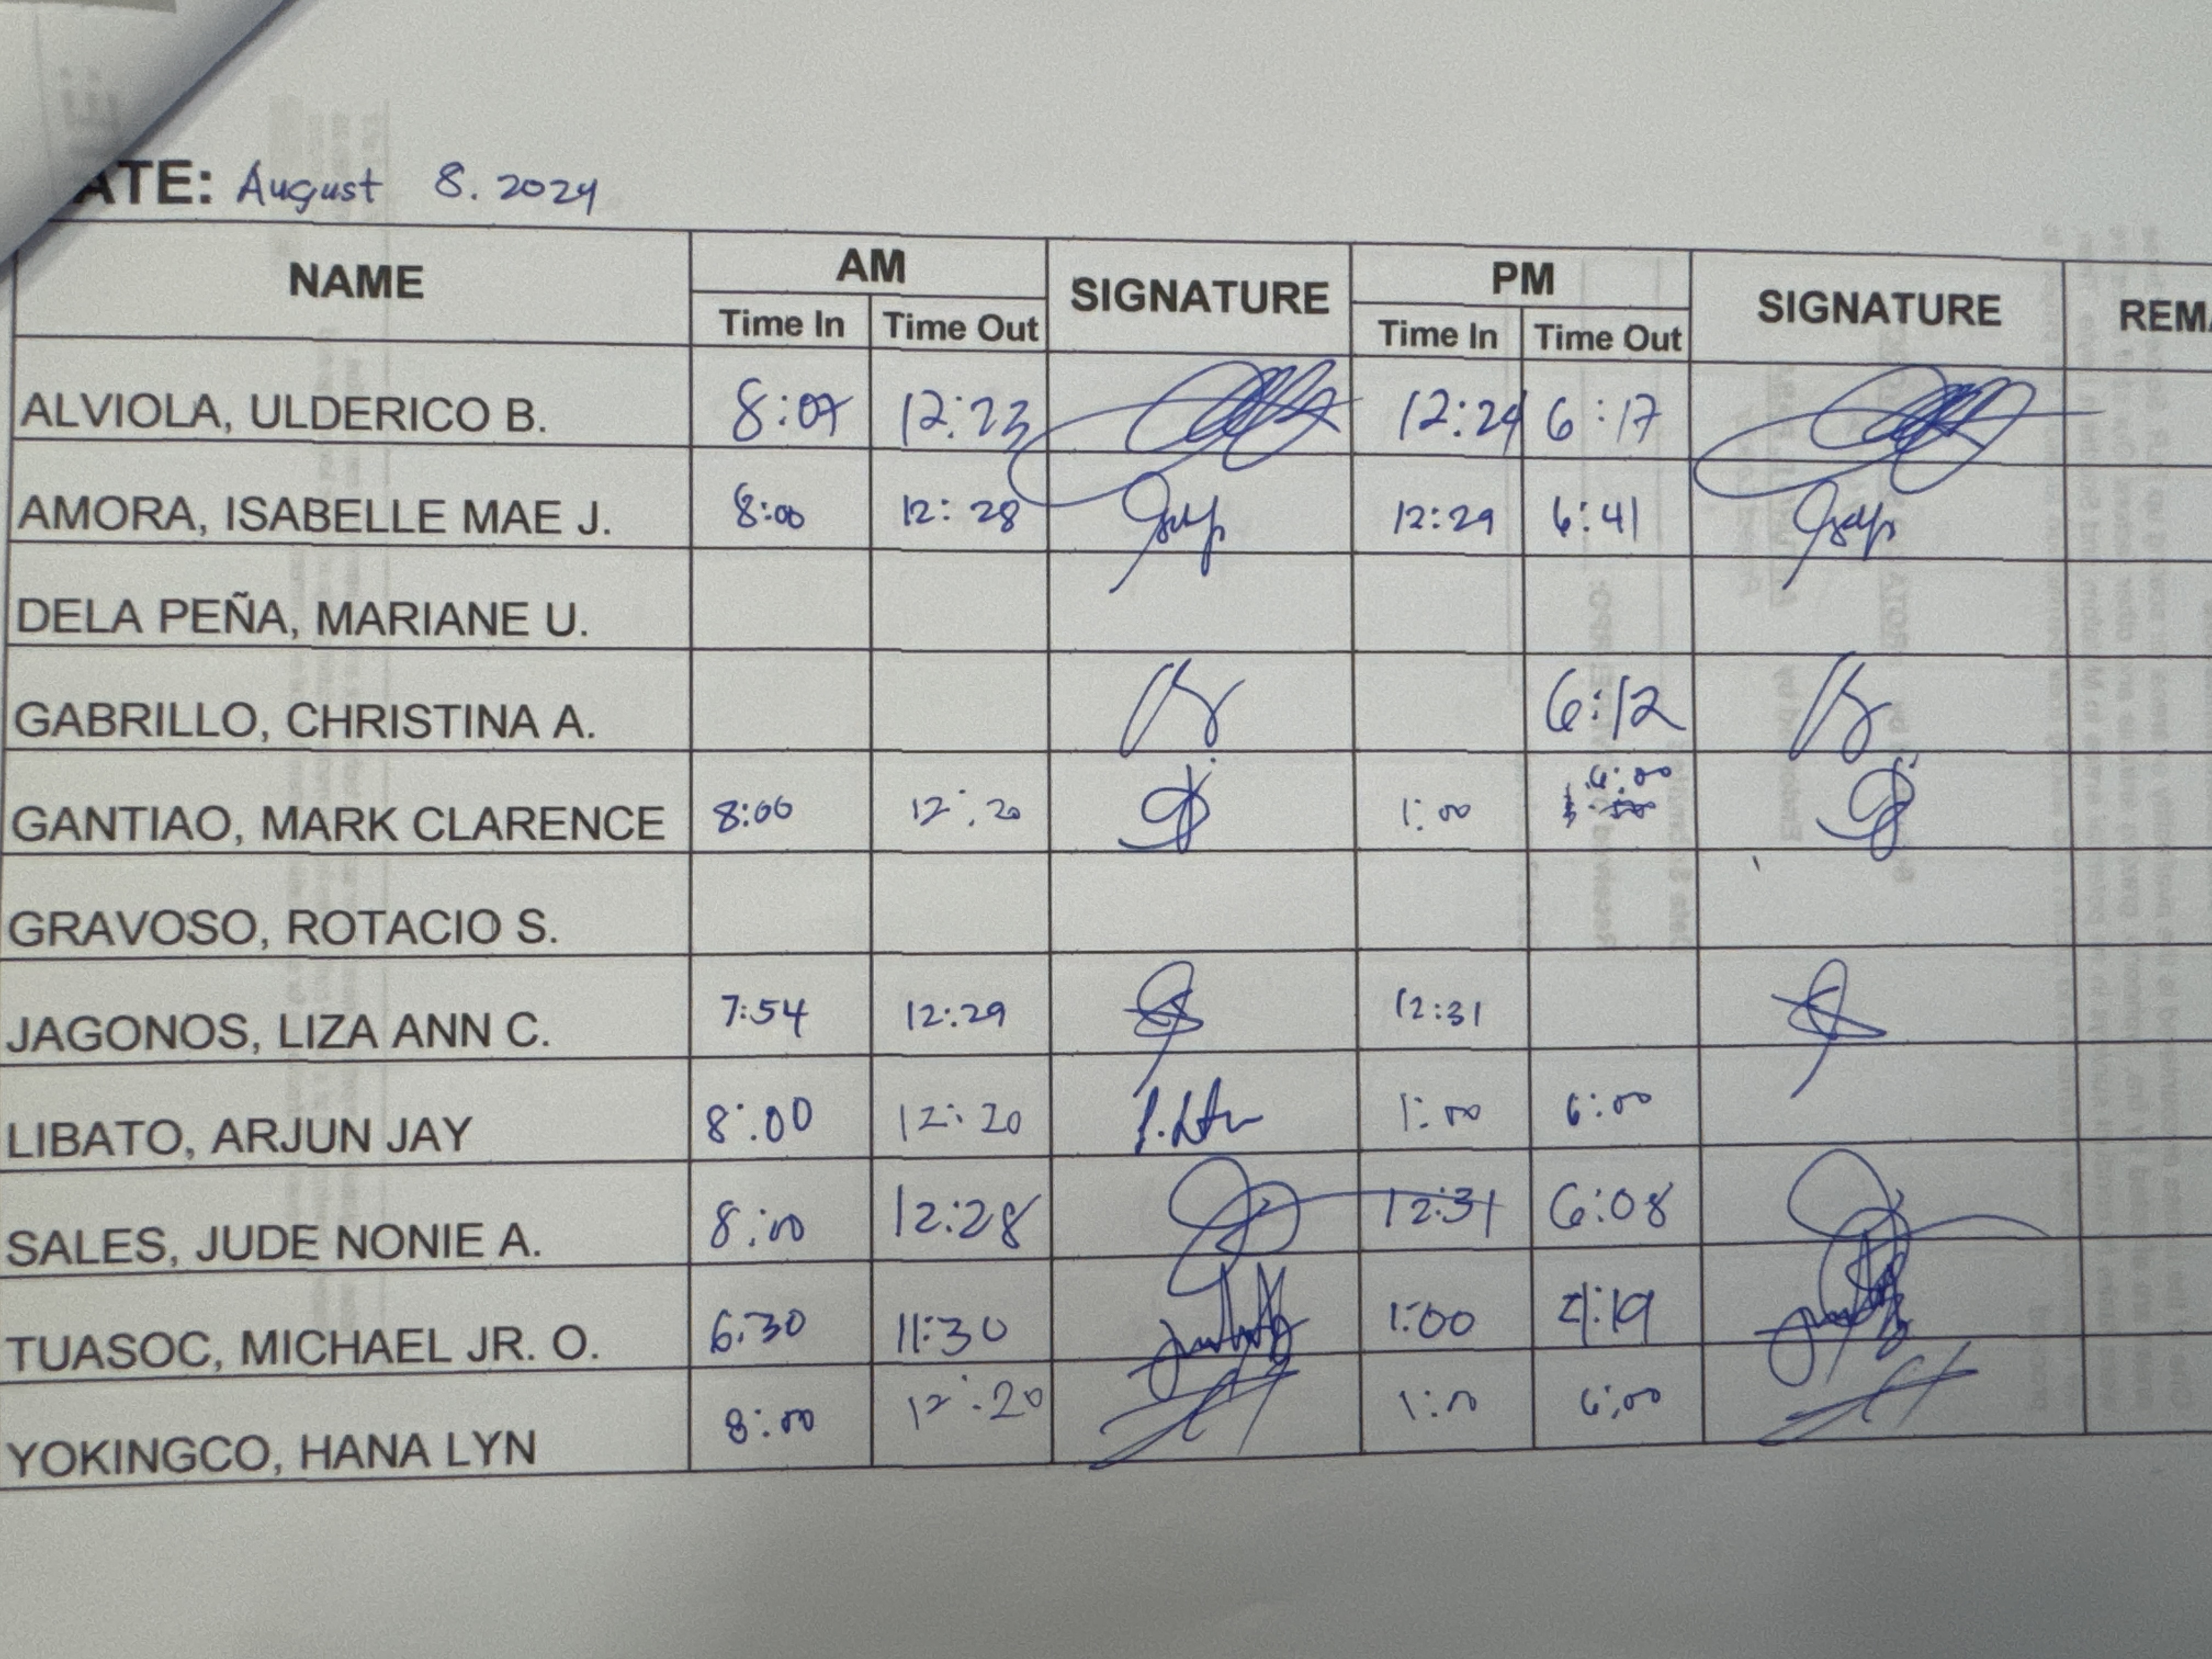 ATE: August 8. 2024
NAME AM SIGNATURE PM SIGNATURE REMA
Time In Time Out Time In Time Out
ALVIOLA, ULDERICO B. 8:07 12:23 12:24 6:17
AMORA, ISABELLE MAE J. 8:00 12:28 12:29 6:41
DELA PEÑA, MARIANE U.
GABRILLO, CHRISTINA A. 6:12
GANTIAO, MARK CLARENCE 8:00 12:20 1:00 6:00
GRAVOSO, ROTACIO S.
JAGONOS, LIZA ANN C. 7:54 12:29 12:31
LIBATO, ARJUN JAY 8:00 12:20 1:00 6:00
SALES, JUDE NONIE A. 8:00 12:28 12:31 6:08
TUASOC, MICHAEL JR. O. 6:30 11:30 1:00 4:19
YOKINGCO, HANA LYN 8:00 12:20 1:00 6:00